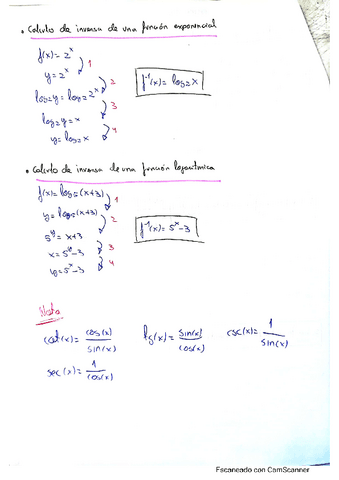 • Calculo de inversa de una función exponencial
f(x) = 2^x
1
y = 2^x
2
log₂y = log₂2^x
f⁻¹(x) = log₂x
3
log₂y = x
4
y = log₂x
• Calculo de inversa de una función logaritmica
f(x) = log₅(x+3)
1
y = log₅(x+3)
2
f⁻¹(x) = 5^x - 3
5^y = x+3
3
x = 5^y - 3
4
y = 5^x - 3
Nota
cot(x) = cos(x)/sin(x) tg(x) = sin(x)/cos(x) csc(x) = 1/sin(x)
sec(x) = 1/cos(x)
Escaneado con CamScanner